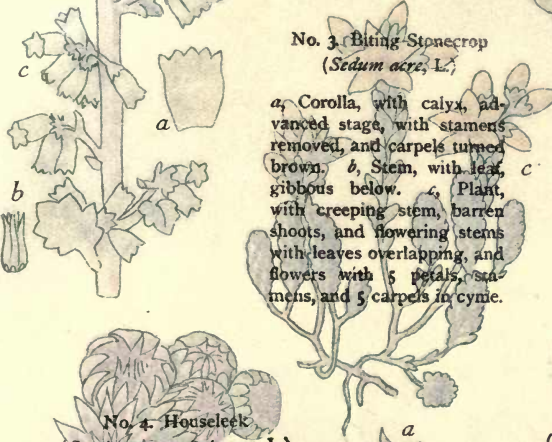 c
a
b
No. 3. Biting Stonecrop
(Sedum acre, L.)
a, Corolla, with calyx, ad-
vanced stage, with stamens
removed, and carpels turned
brown. b, Stem, with leaf,
gibbous below. c, Plant,
with creeping stem, barren
shoots, and flowering stems
with leaves overlapping, and
flowers with 5 petals, sta-
mens, and 5 carpels in cyme.
c
No. 4. Houseleek
a